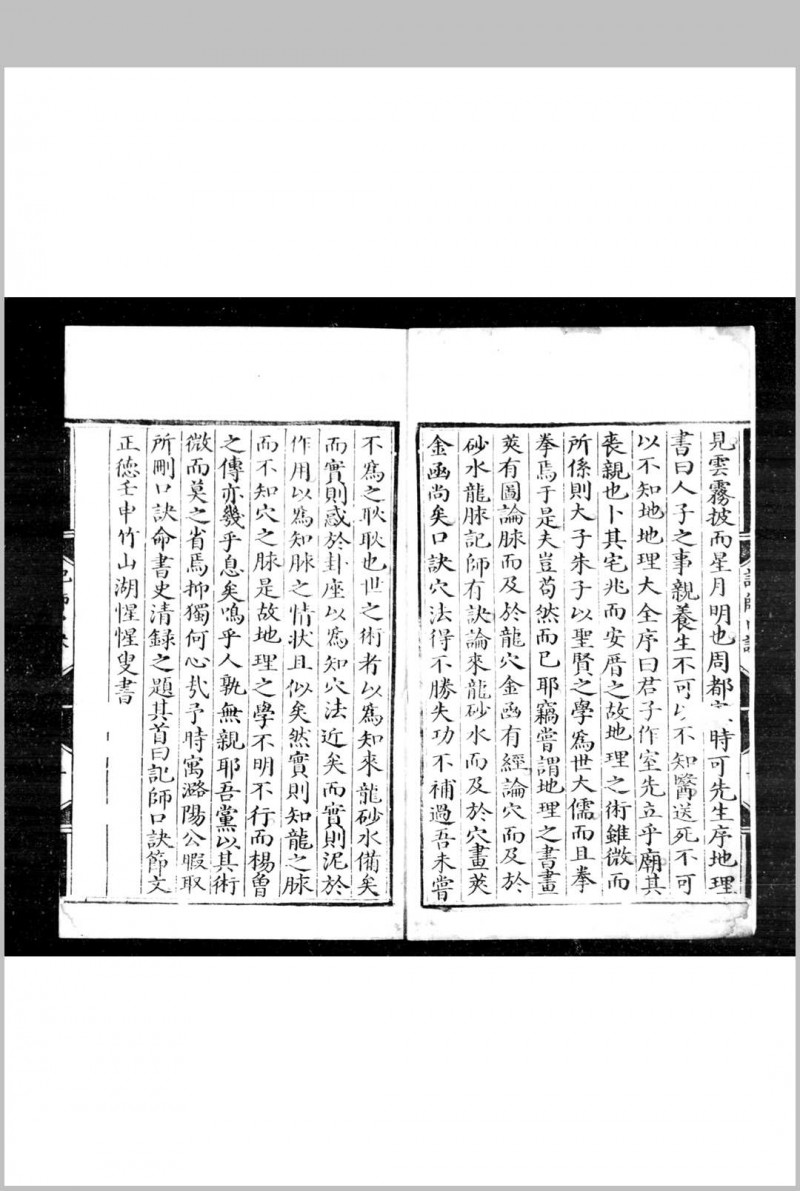 見雲霧披而星月明也周都時可先生序地理
書曰人子之事親養生不可以不知醫送死不可
以不知地地理大全序曰君子作室先立乎廟其
喪親也卜其宅兆而安厝之故地理之術雖微而
所係則大子朱子以聖賢之學為世大儒而且拳
拳焉于是夫豈苟然而已耶竊嘗謂地理之書畫
莢有圖論脉而及於龍穴金函有經論穴而及於
砂水龍脉記師有訣論來龍砂水而及於穴畫莢
金函尚矣口訣穴法得不勝失功不補過吾未嘗
不為之耿耿也世之術者以為知來龍砂水備矣
而實則惑於卦座以為知穴法近矣而實則泥於
作用以為知脉之情状且似矣然實則知龍之脉
而不知穴之脉是故地理之學不明不行而楊曾
之傳亦幾乎息矣嗚乎人孰無親耶吾黨以其術
微而莫之省焉抑獨何心㢤予時寓潞陽公暇取
所刪口訣命書史清録之題其首曰記師口訣節文
正德壬申竹山湖惺惺叟書
記師口訣